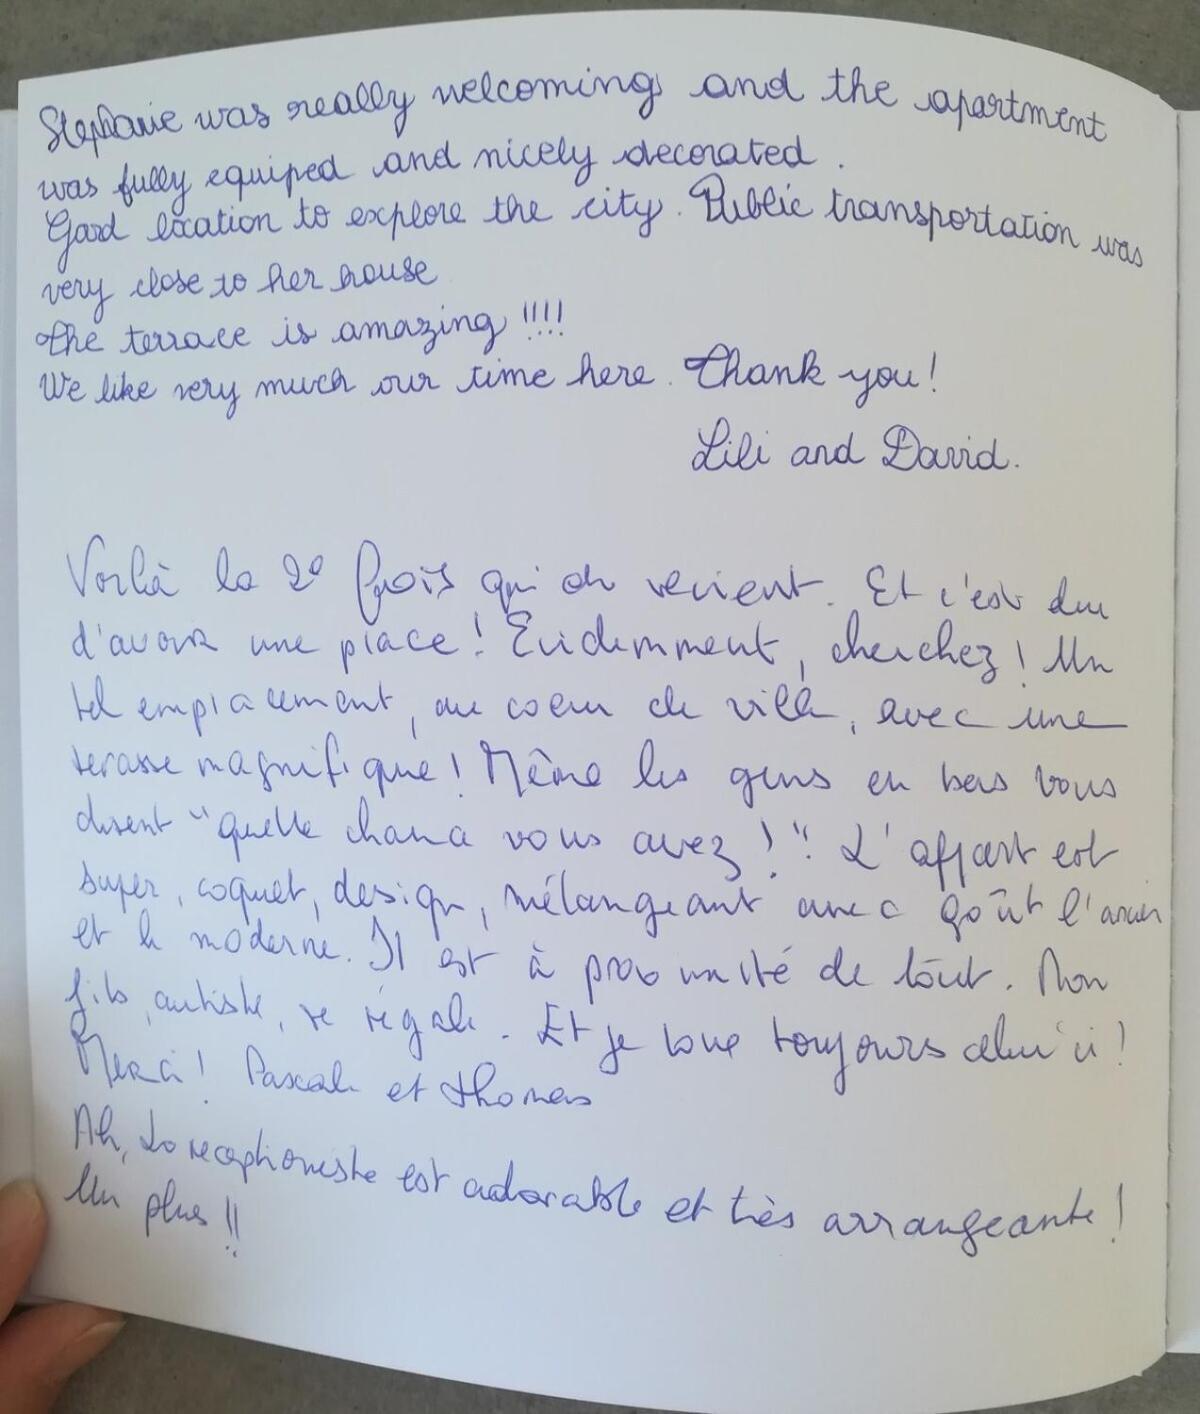 Stephanie was really welcoming and the apartment
was fully equiped and nicely decorated.
Good location to explore the city. Public transportation was
very close to her house
the terrace is amazing !!!!
We like very much our time here. Thank you!
Lili and David.
Voilà la 2e fois qu'on revient. Et c'est dur
d'avoir une place! Evidemment, cherchez! Un
tel emplacement, au coeur de ville, avec une
terasse magnifique! Même les gens en bas vous
disent "quelle chance vous avez!". L'appart est
super, coquet, design, mélangeant avec goût l'ancien
et le moderne. Il est à proximité de tout. Mon
fils, autiste, se régale. Et je loue toujours celui ci!
Merci! Pascale et Thomas
Ah, la receptioniste est adorable et très arrangeante!
Un plus!!